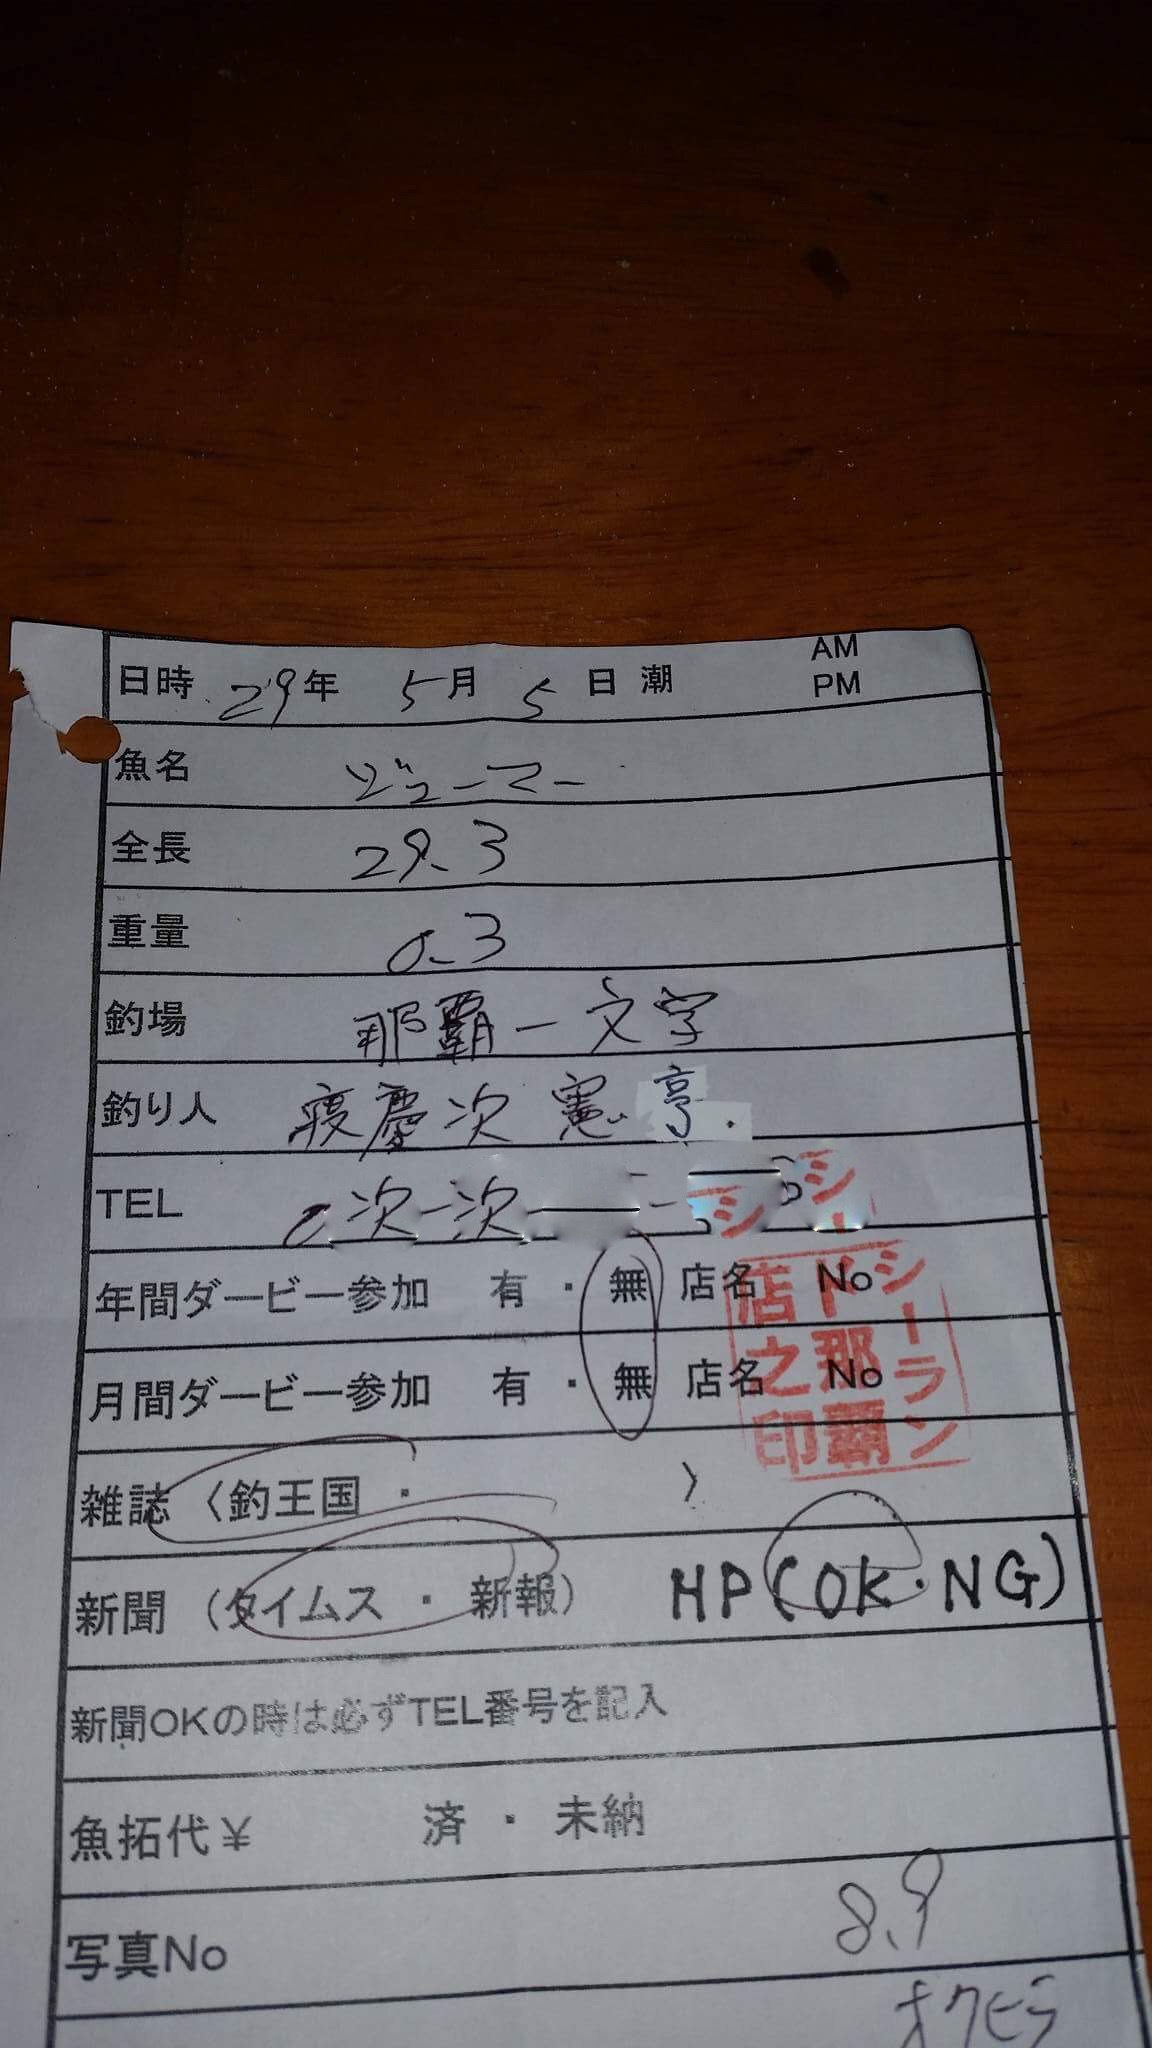 日時 29年 5月 5日 潮 AM PM
魚名 ジューマー
全長 29.3
重量 0.3
釣場 那覇一文字
釣り人 慶次 憲亨.
TEL
年間ダービー参加 有・無 店名 No
月間ダービー参加 有・無 店名 No
シーランド那覇店之印
雑誌〈釣王国・ 〉
新聞(タイムス・新報) HP(OK・NG)
新聞OKの時は必ずTEL番号を記入
魚拓代¥ 済・未納
写真No 8.9
オクヒラ